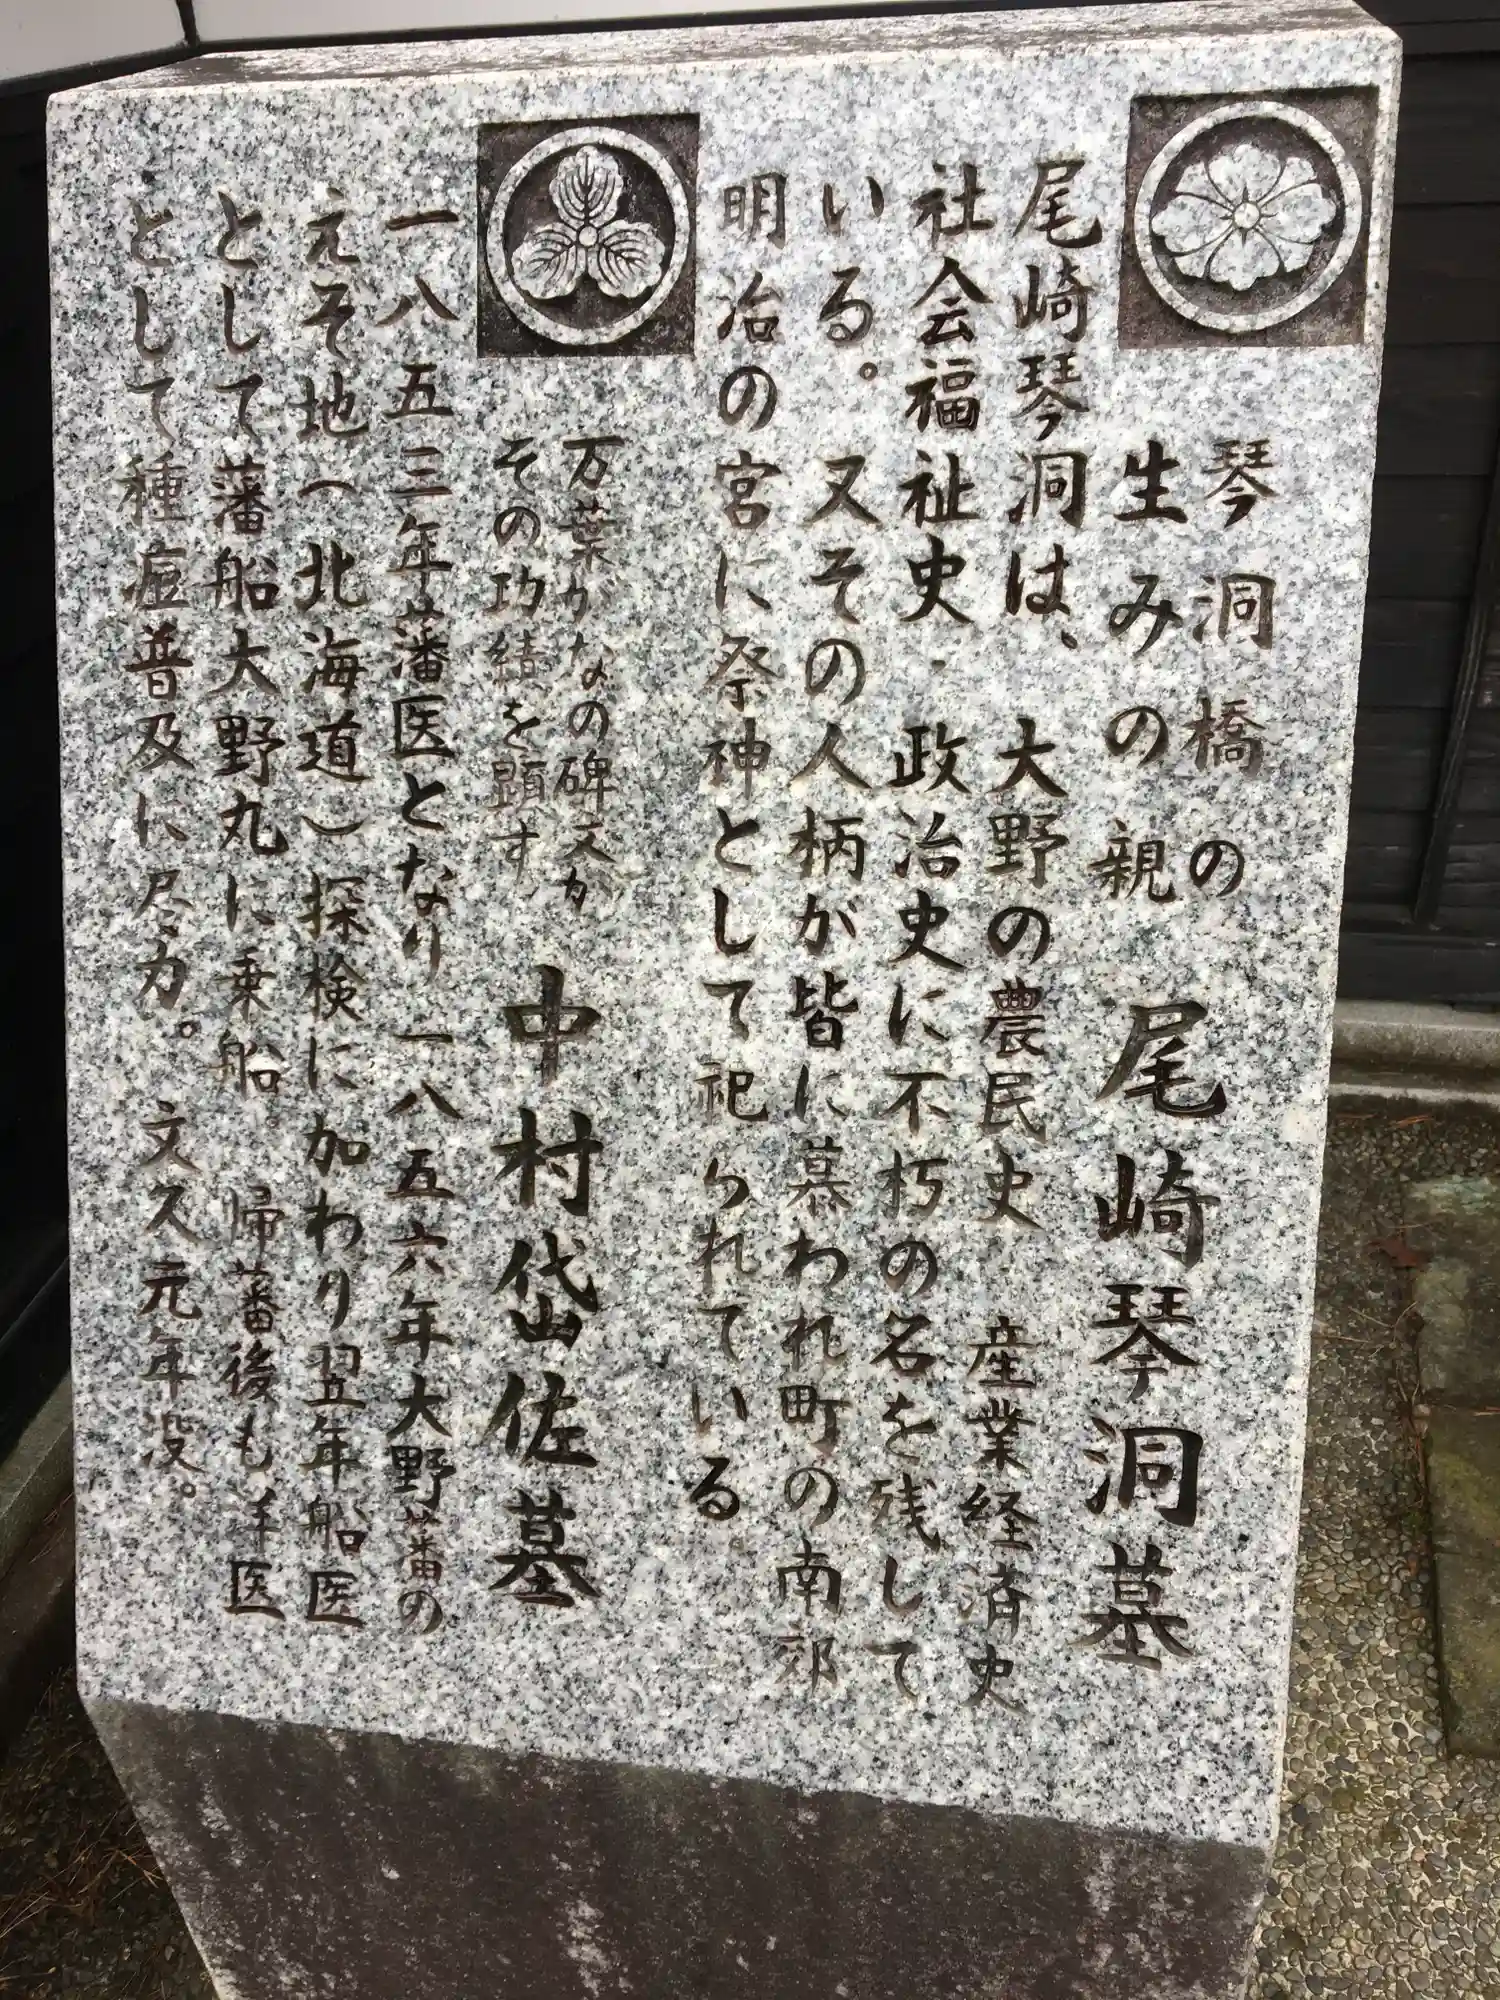 琴洞橋の
生みの親
尾崎琴洞墓
尾崎琴洞は、大野の農民史 産業経済史
社会福祉史・政治史に不朽の名を残して
いる。又その人柄が皆に慕われ町の南郊
明治の宮に祭神として祀られている。
万葉がなの碑文が
その功績を顕す
中村岱佐墓
一八五三年藩医となり一八五六年大野藩の
えそ地(北海道)探検に加わり翌年船医
として藩船大野丸に乗船。帰藩後も洋医
として種痘普及に尽力。文久元年没。